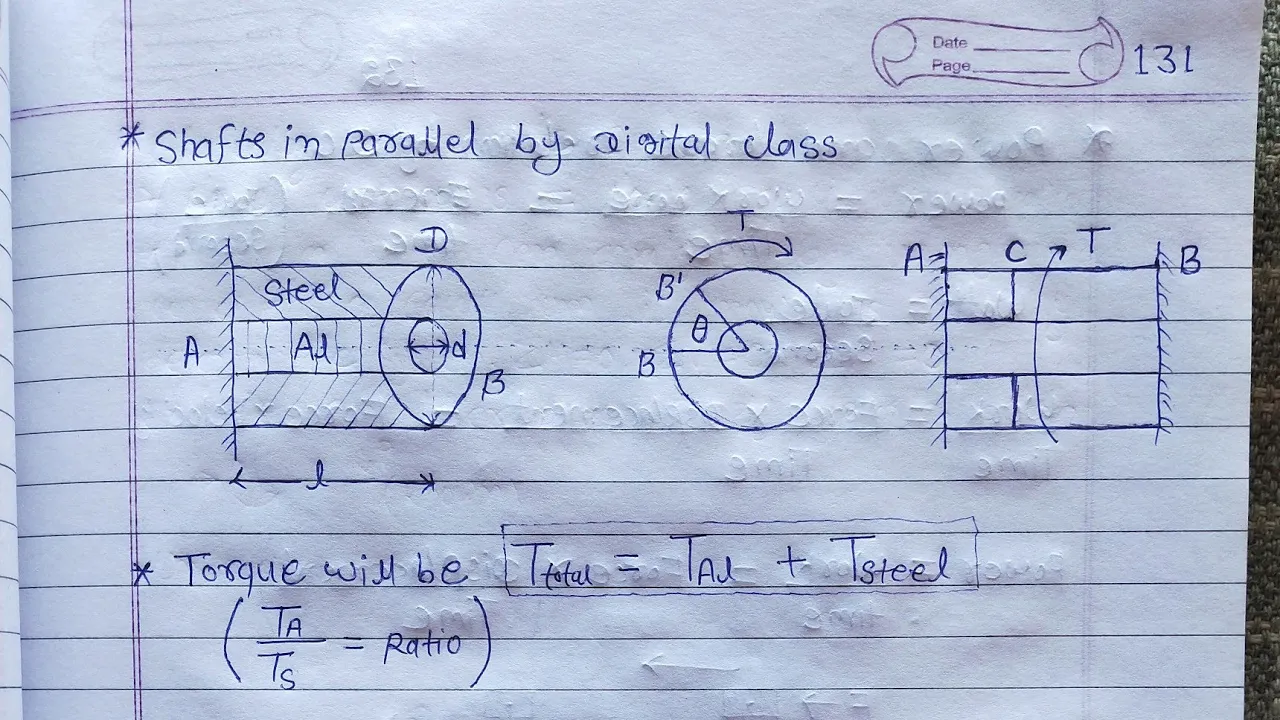 Date
Page 131
* Shafts in parallel by digital class
D
Steel
A Al d
B
l
T
B'
θ
B
A C T B
* Torque will be T_total = T_Al + T_Steel
(T_A / T_S = Ratio)